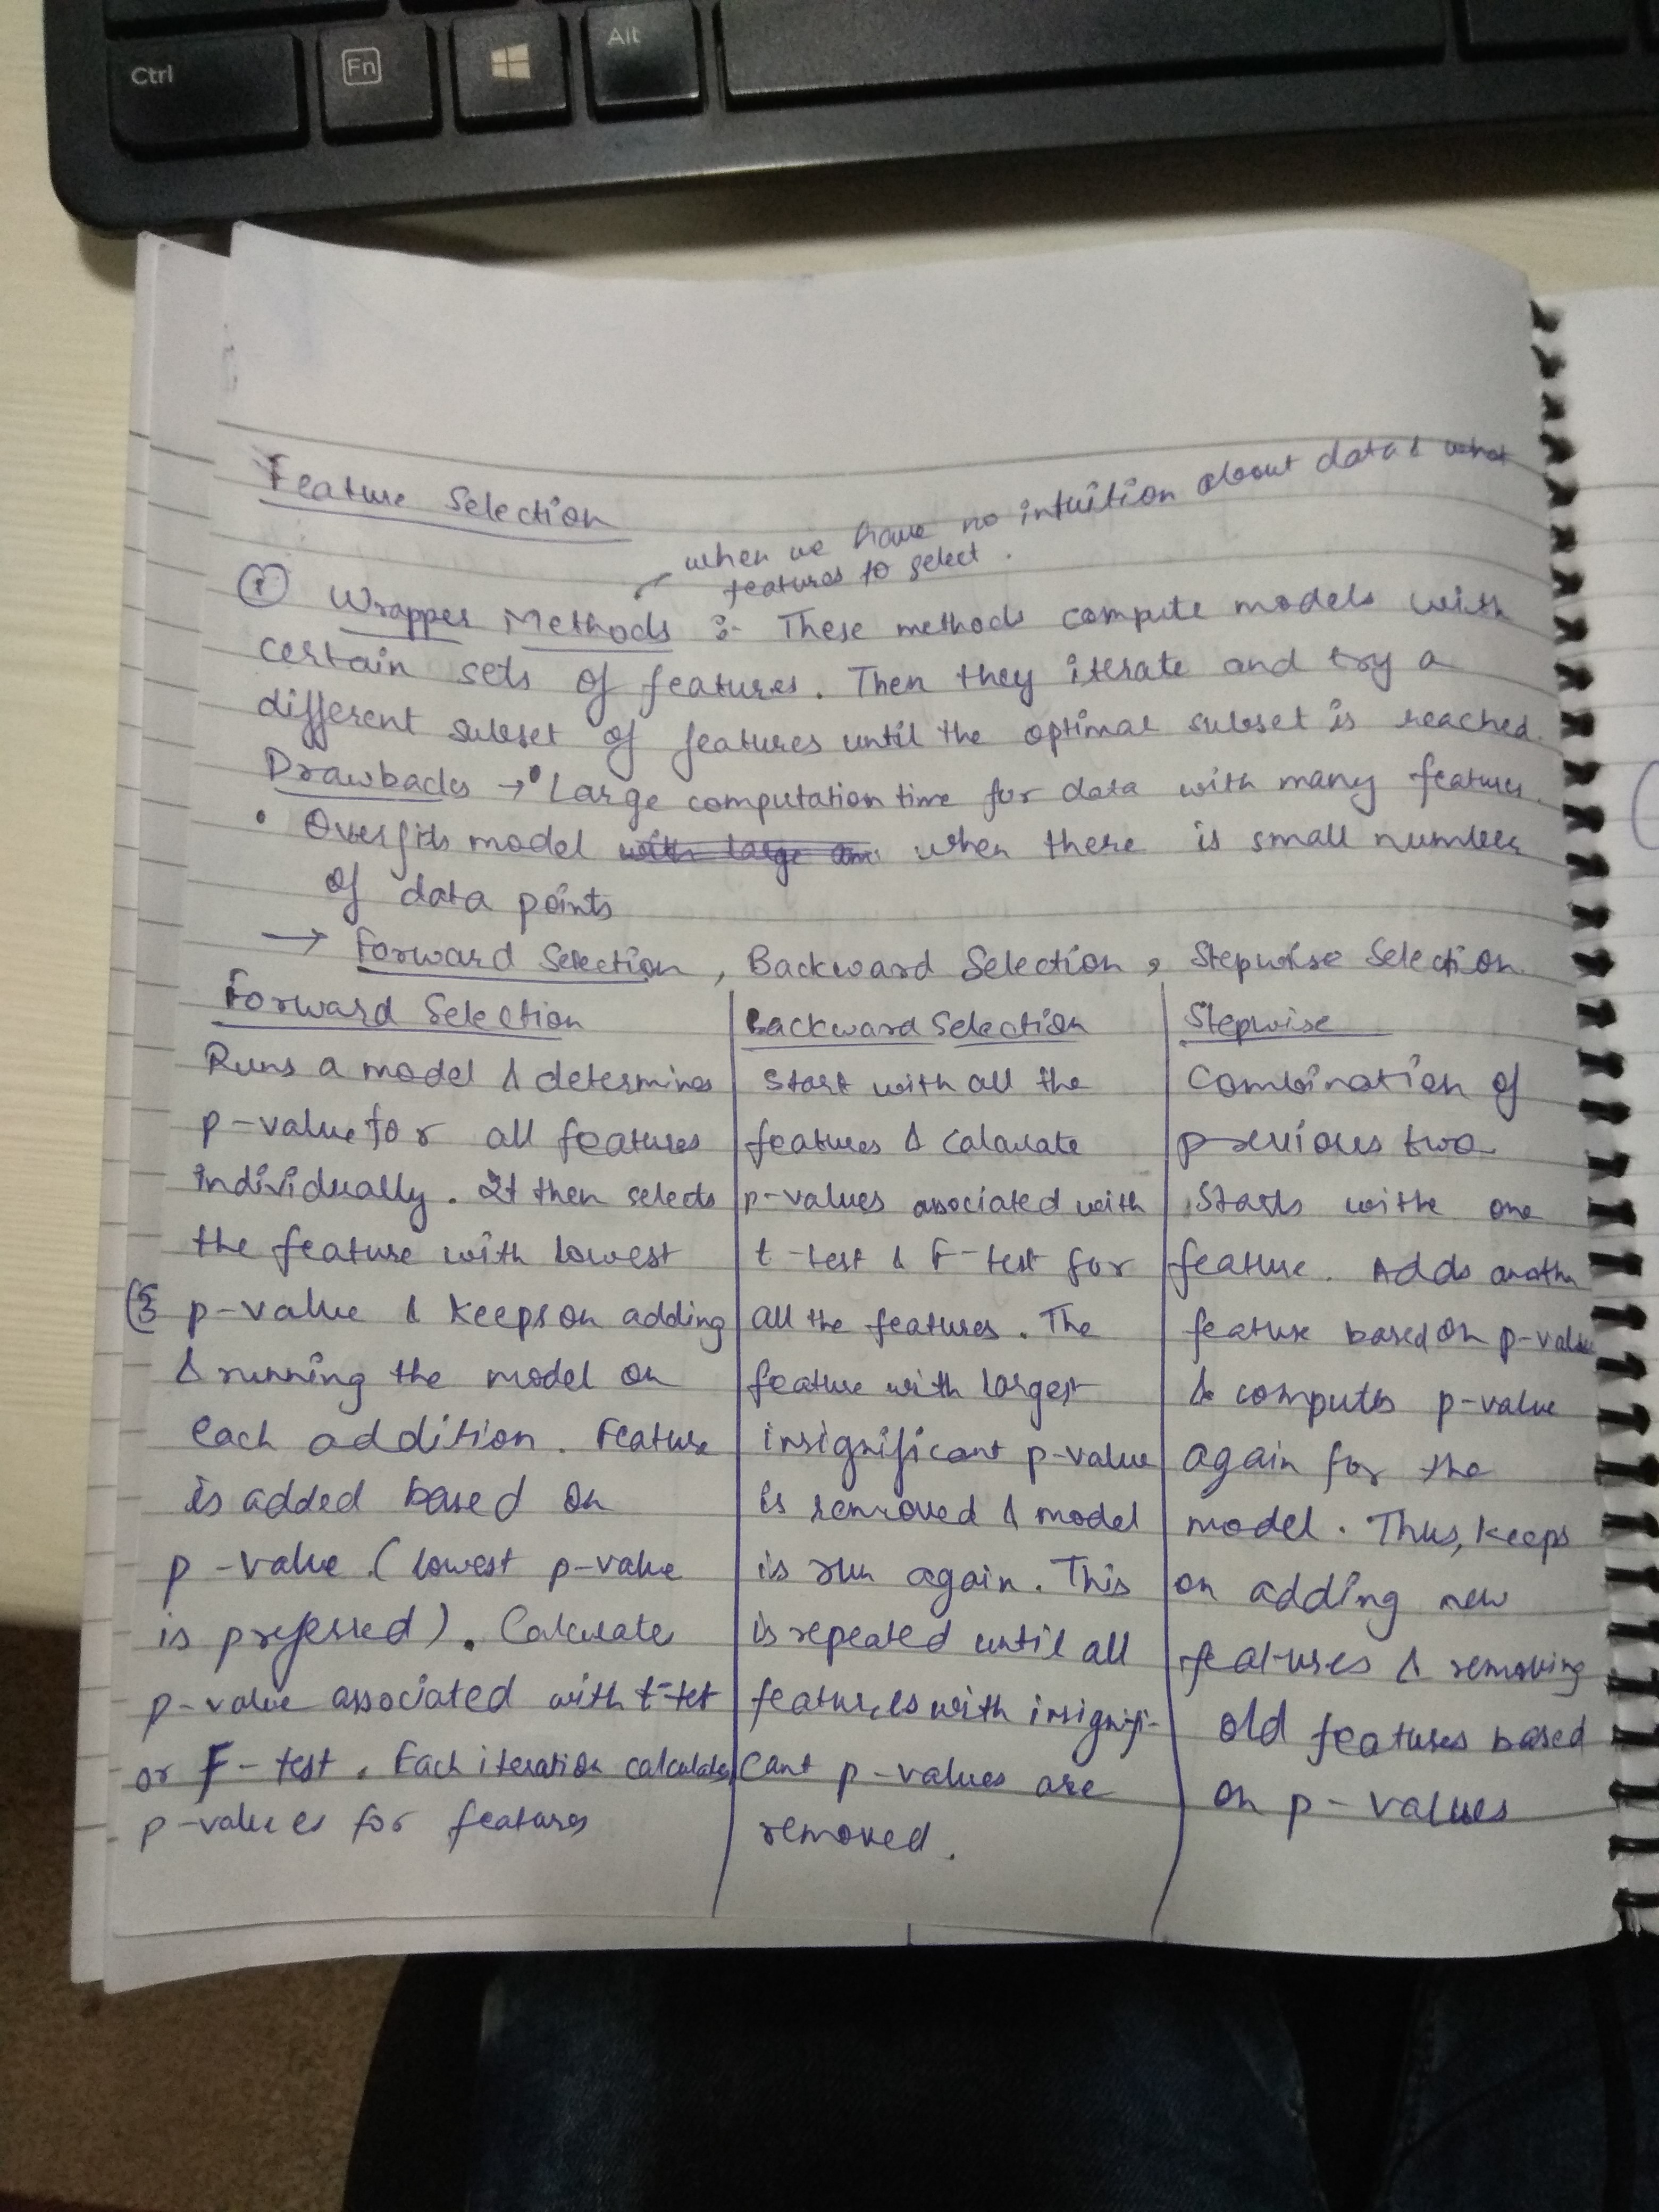 Ctrl
Fn
Alt
Feature Selection
when we have no intuition about data & what
features to select .
① Wrapper Methods :- These methods compute models with
certain sets of features. Then they iterate and try a
different subset of features until the optimal subset is reached.
Drawbacks → • Large computation time for data with many features.
• Overfits model with large am when there is small number
of data points
→ Forward Selection , Backward Selection , Stepwise Selection.
Forward Selection
Runs a model & determines
p-value for all features
individually. It then selects
the feature with lowest
p-value & keeps on adding
& running the model on
each addition. Feature
is added based on
p-value (lowest p-value
is preferred). Calculate
p-value associated with t-test
or F-test. Each iteration calculates
p-values for features
Backward Selection
Start with all the
features & calculate
p-values associated with
t-test & F-test for
all the features. The
feature with largest
insignificant p-value
is removed & model
is run again. This
is repeated until all
features with insignifi-
cant p-values are
removed.
Stepwise
Combination of
previous two
Starts withe one
feature. Adds another
feature based on p-value
& computes p-value
again for the
model. Thus, keeps
on adding new
features & removing
old features based
on p-values